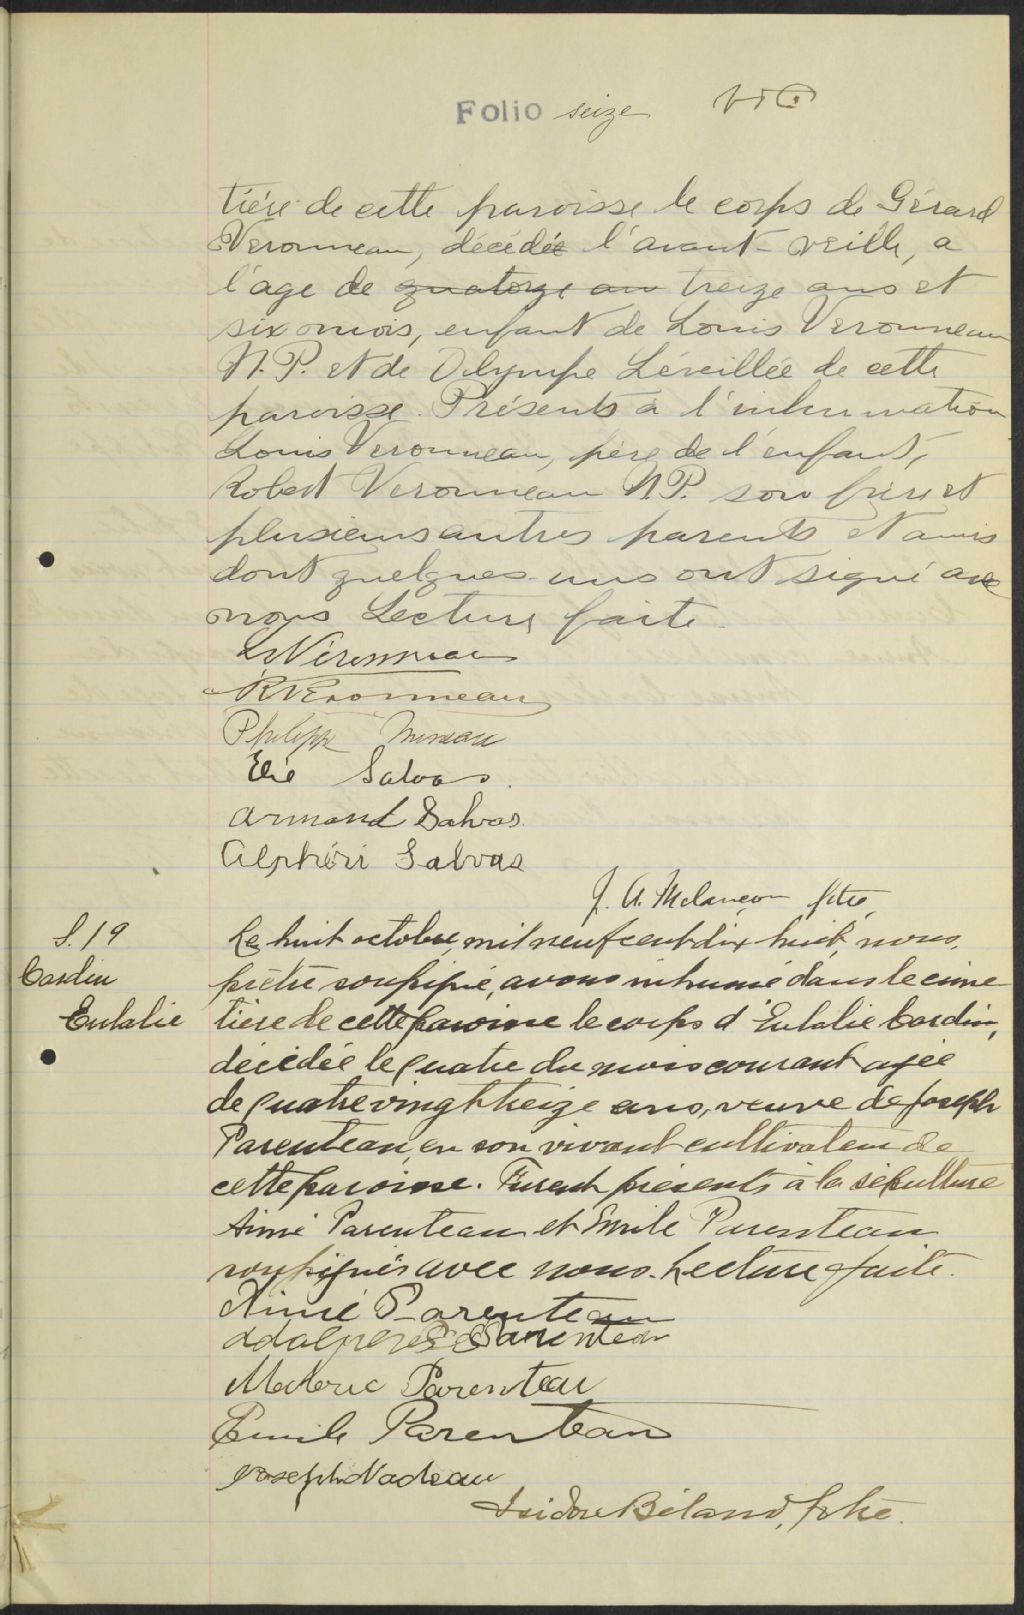 Folio seize
tière de cette paroisse le corps de Gérard
Veronneau, décédé l'avant-veille, a
l'age de quatorze an treize ans et
six mois, enfant de Louis Veronneau
N.P. et de Olympe Léveillée de cette
paroisse. Présents à l'inhumation
Louis Veronneau, père de l'enfant,
Robert Veronneau N.P. son frère et
plusieurs autres parents et amis
dont quelques-uns ont signé avec
nous Lecture faite.
L Véronneau
R Veronneau
Philippe
Elie Salvas.
Armand Salvas.
Alphéri Salvas
J. A. Melançon ptre,
S. 19
Cardin
Eulalie
Le huit octobre, mil neuf cent dix huit, nous,
prêtre soussigné, avons inhumé dans le cime
tière de cette paroisse le corps d'Eulalie Cardin,
décédée le quatre du mois courant agée
de quatre vingt treize ans, veuve de Joseph
Parenteau, en son vivant cultivateur de
cette paroisse. Furent présents à la sépulture
Aimé Parenteau et Emile Parenteau
soussignés avec nous. Lecture faite.
Aimé Parenteau
Parenteau
Parenteau
Emile Parenteau
Joseph Nadeau
Isidore Béland, ptre.